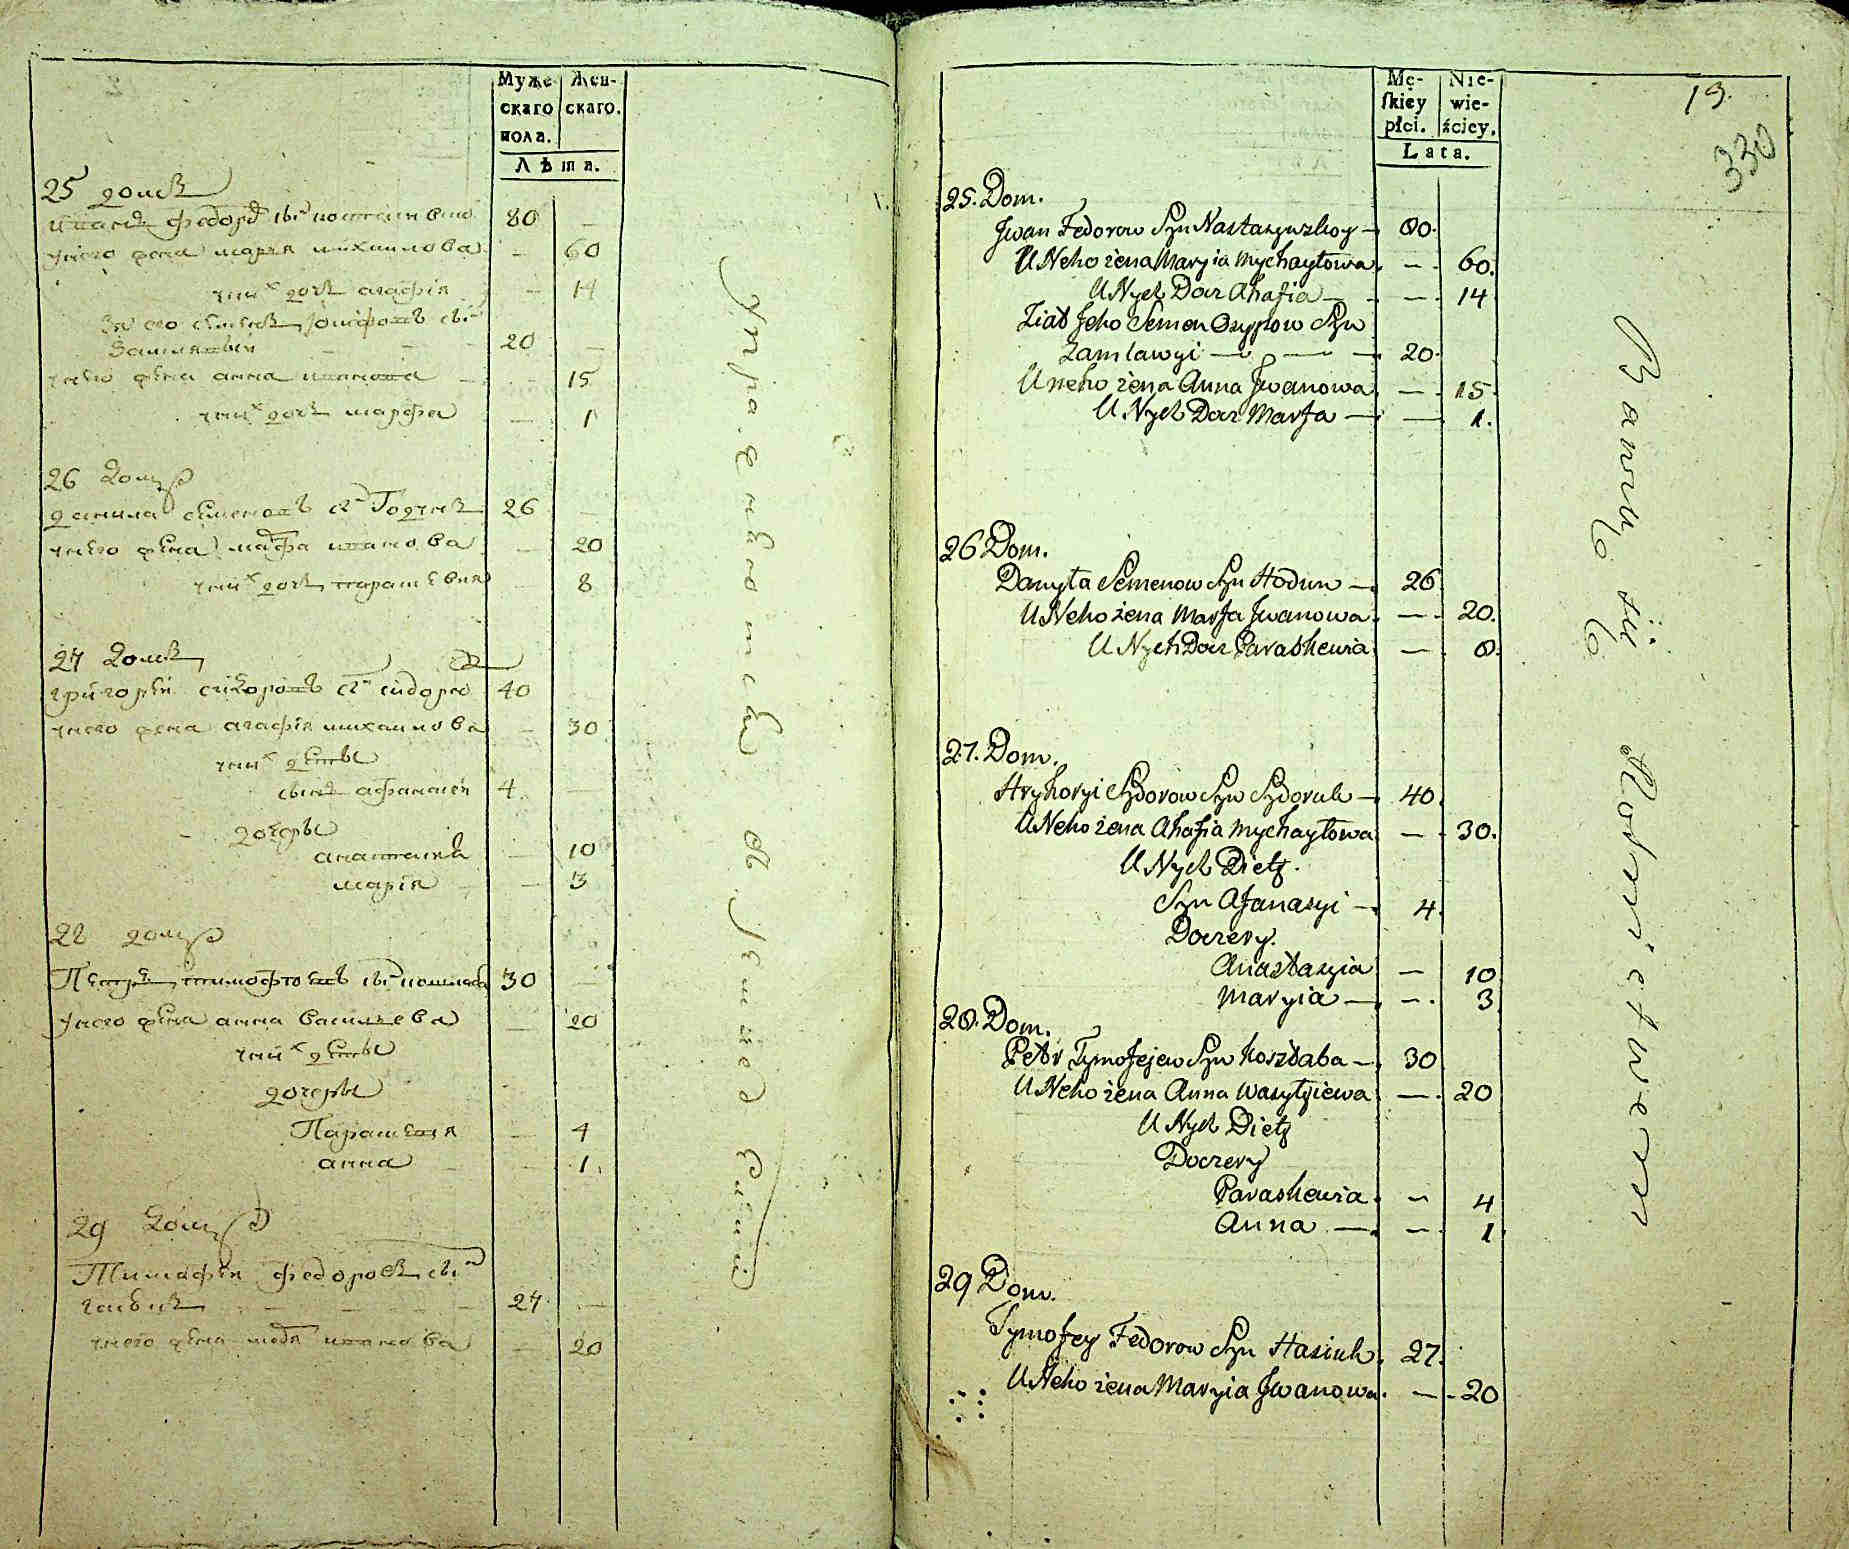 Муже
скаго
пола.
Жен-
скаго.
Лѣта.
25 домъ
Иванъ Федоровъ сынъ 80 —
У него жена марія михаилова — 60
у них дочь агафія — 14
Зять его семенъ Іосифовъ сынъ
20 —
у него жена анна иванова — 15
у них дочь марфа — 1
26 домъ
данила семеновъ сынъ Годунъ 26 —
у него жена марфа иванова — 20
у них дочь парашевия — 8
27 домъ
григорей сидоровъ сынъ сидорю 40
у него жена агафія михаилова — 30
у них дети
сынъ афанасей 4 —
дочеры
анастасия — 10
марія — 3
28 домъ
Петръ тимофеевъ сынъ 30 —
у него жена анна васильева — 20
у них дети
дочеры
Парашевия — 4
анна — 1
29 домъ
Тимофей федоровъ сынъ
27 —
у него жена иванова — 20
Упражняются в Земледелии
Mę-
ſkiey
płci.
Nie-
wie-
ściey.
Lata.
19.
330
25. Dom.
Jwan Fedorow Syn — 80.
U Neho żena Maryia Mychayłowa — 60.
U Nych Docz Ahafia — 14
Ziat Jeho Semen Osypow Syn
Zamławyi — 20.
U neho żena Anna Jwanowa — 15.
U Nych Docz Marfa — 1.
26 Dom.
Danyła Semenow Syn Hodun — 26
U Neho żena Marfa Jwanowa — 20.
U Nych Docz Paraskewia — 8.
27. Dom.
Hryhoryi Sydorow Syn Sydoruk — 40
U Neho żena Ahafia Mychayłowa — 30.
U Nych Diety.
Syn Afanasyi — 4
Doczery.
Anastasyia — 10
Maryia — 3
28. Dom.
Petr Tymofejew Syn Kosztaba — 30
U Neho żena Anna Wasylyiewa — 20
U Nych Diety
Doczery
Paraskewia — 4
Anna — 1
29 Dom.
Tymofey Fedorow Syn Hasiuk 27.
U Neho żena Maryia Jwanowa — 20
Bawią się Rolnictwem